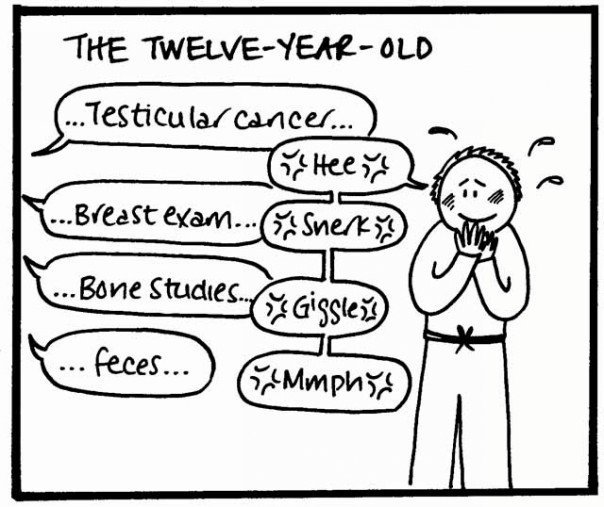 THE TWELVE-YEAR-OLD
...Testicular cancer...
Hee
...Breast exam...
Snerk
...Bone Studies...
Giggle
... feces...
Mmph